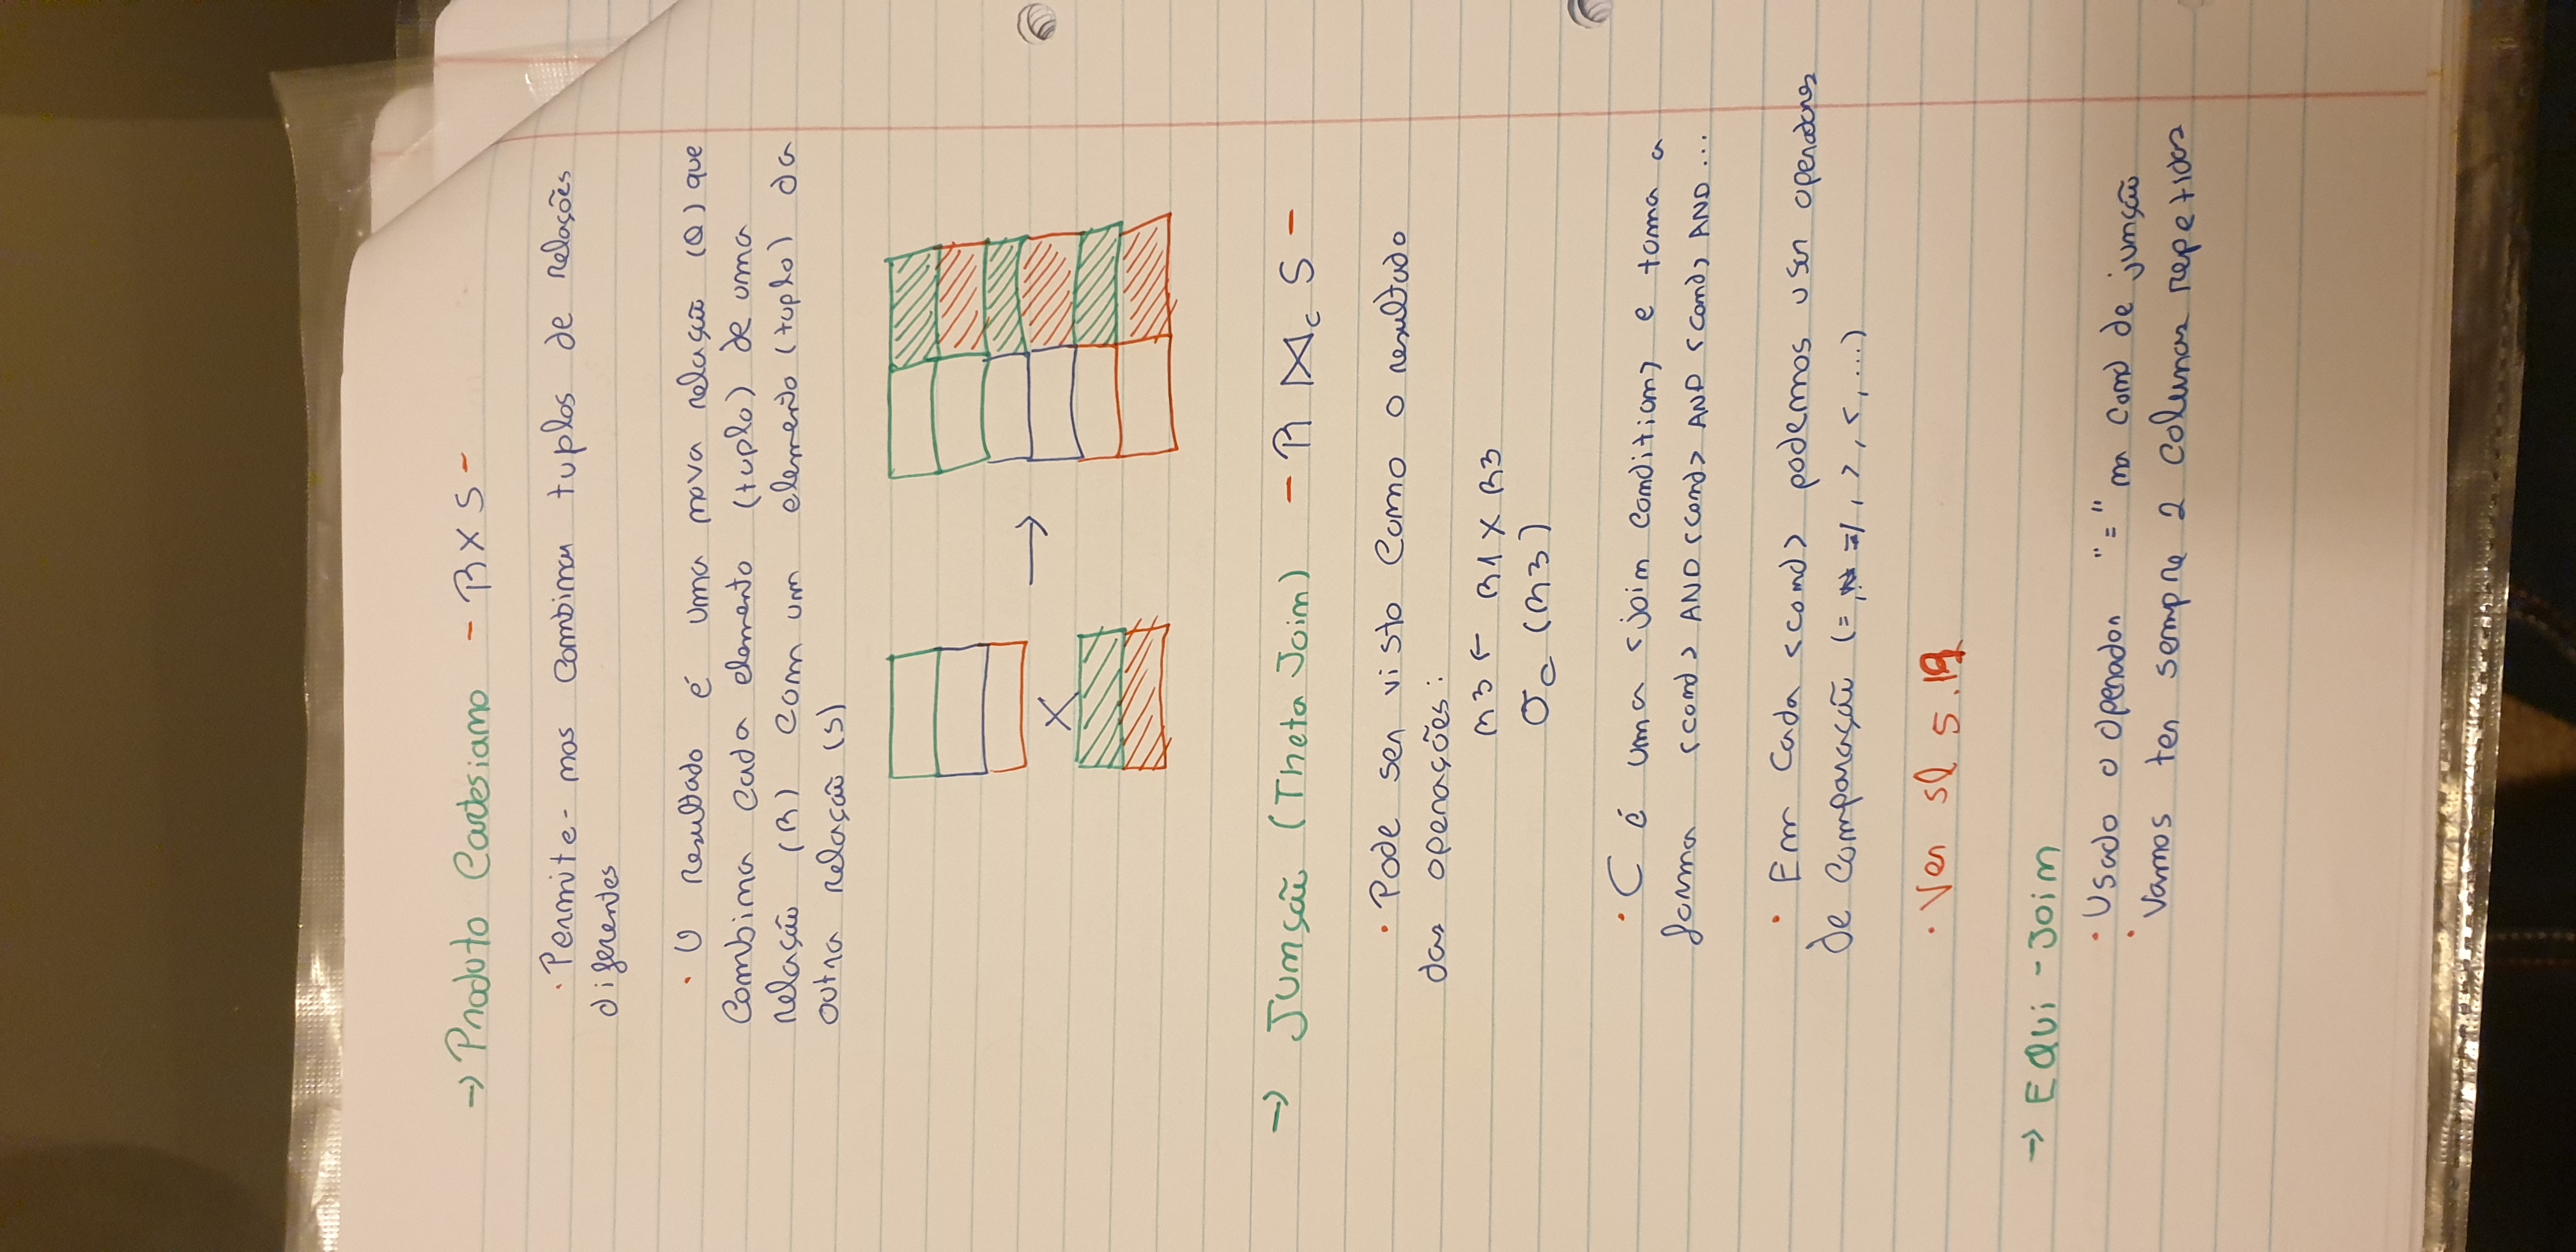 → Produto Cartesiano - R X S -
· Permite-nos combinar tuplos de relações
diferentes
· O resultado é uma nova relação (Q) que
combina cada elemento (tuplo) de uma
relação (R) com um elemento (tuplo) da
outra relação (S)
X →
→ Junção (Theta Join) - R ⋈c S -
· Pode ser visto como o resultado
das operações:
R3 ← R1 X R3
σc (R3)
· C é uma <join condition> e toma a
forma <cond> AND <cond> AND <cond> AND ...
· Em cada <cond> podemos usar operadores
de comparação (=, =/, >, <, ...)
· Ver sl 5.19
→ EQUI-JOIN
· Usado o operador "=" na cond de junção
· Vamos ter sempre 2 colunas repetidas